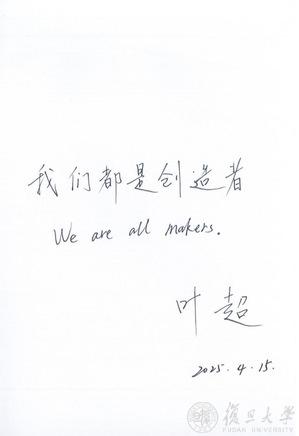 我们都是创造者
We are all makers.
叶超
2025.4.15.
復旦大学
FUDAN UNIVERSITY